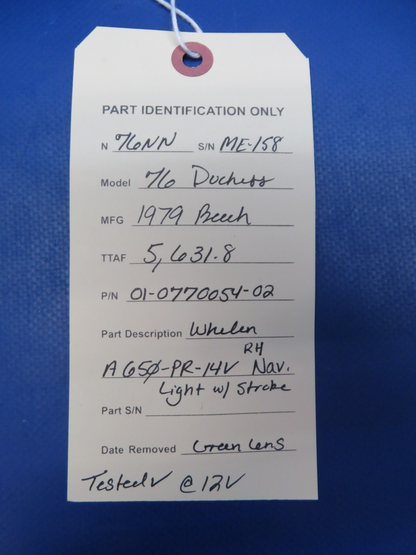 PART IDENTIFICATION ONLY
N 76NN S/N ME-158
Model 76 Duchess
MFG 1979 Beech
TTAF 5,631.8
P/N 01-0770054-02
Part Description Whelen
A650-PR-14V RH Nav.
Light w/ Strobe
Part S/N
Date Removed Green Lens
Tested √ @ 12V